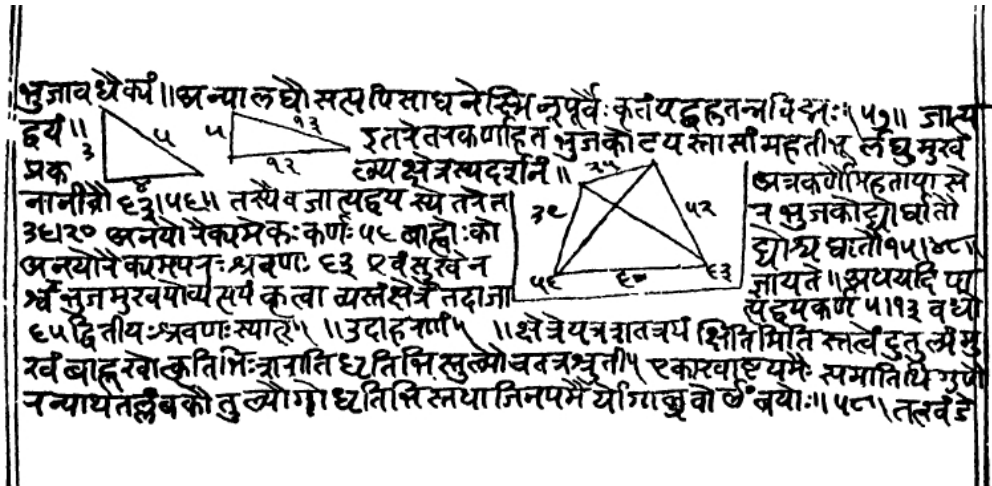 भुजावधैक्यं ॥ अन्या लघौ सत्यपि साधनेस्मिन् पूर्वैः कृतं यद्गुरु तन्न विद्मः ॥ ५७ ॥ जात्य
द्वयं ॥ ३ ५ ५ १३ इतरेतरकर्णाहत भुजकोटयस्तासां महती भू र्लघु मुखं
प्रक ४ १२ म्य क्षेत्रस्य दर्शनं ॥ २५ अत्र कर्णौ महतायासे
नानीतौ ६३।५६॥ तस्यैव जात्यद्वयस्ये तरेत ३९ ५२ र भुजकोट्यो र्घातौ
३६।२० अनयोरैक्यमेकः कर्णः ५६ बाह्वोः को ट्योश्च घातौ १५।४८।
अनयोरैक्यमपरः श्रवणः ६३ एवं सुखेन ५६ ६० ६३ ज्ञायते ॥ अथ यदि पा
र्श्वभुजमुखयोर्व्यत्ययं कृत्वा न्यस्तं क्षेत्रं तदा जा त्यद्वयकर्ण ५।१३ वधो
६५ द्वितीयः श्रवणः स्यात् ॥ उदाहरणं ॥ क्षेत्रे यत्र शतत्रयं क्षितिमिति स्तत्वेंदुतुल्यं मु
खं बाहू खोत्कृतिभिः शरातिधृतिभिस्तुल्यौ च तत्र श्रुती एका खाष्टयमैः समा तिथिगुणै
रन्याथ तल्लंबकौ तुल्यौ गोधृतिभिस्तथा जिनयमैर्योगाच्छ्रवोर्लंबयोः ॥ ५८ ॥ तत्खंडे